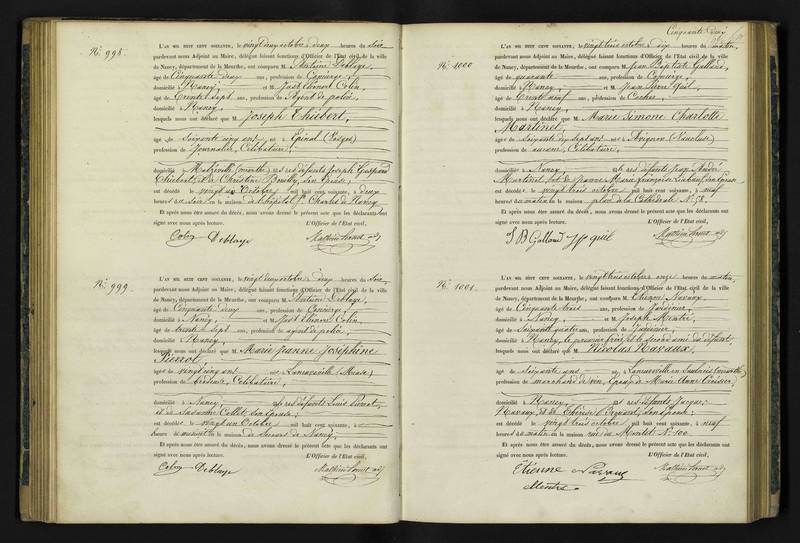 No. 998.
L'AN MIL HUIT CENT SOIXANTE, le vingt deux octobre deux heures du soir
pardevant nous Adjoint au Maire, délégué faisant fonctions d'Officier de l'État civil de la ville
de Nancy, département de la Meurthe, ont comparu M. Antoine Deblaye,
âgé de Cinquante deux ans, profession de Concierge,
domicilié à Nancy, et M. Just Elienor Colin,
âgé de Trente sept ans, profession de Agent de police,
domicilié à Nancy,
lesquels nous ont déclaré que M. Joseph Thiébert,
âgé de Soixante cinq ans né à Epinal (Vosges)
profession de Journalier, Célibataire,
domicilié à (Meurthe) et des défunts Joseph Gaspard
Thiebert, et de Christine son épouse,
est décédé le vingt un Octobre mil huit cent soixante, à deux
heures du soir en la maison de l'hôpital St. Charles de Nancy
Et après nous être assuré du décès, nous avons dressé le présent acte que les déclarants ont
signé avec nous après lecture. L'Officier de l'État civil,
Colin Deblaye
No. 999.
L'AN MIL HUIT CENT SOIXANTE, le vingt deux octobre deux heures du soir,
pardevant nous Adjoint au Maire, délégué faisant fonctions d'Officier de l'État civil de la ville
de Nancy, département de la Meurthe, ont comparu M. Antoine Deblaye,
âgé de Cinquante deux ans, profession de Concierge,
domicilié à Nancy, et M. Just Elienor Colin,
âgé de trente sept ans, profession de agent de police,
domicilié à Nancy,
lesquels nous ont déclaré que M. Marie Jeanne Joséphine
Pierrot,
âgé de vingt cinq ans né à (Meuse)
profession de brodeuse, Célibataire,
domicilié à Nancy, et des défunts Louis Pierrot,
et de Suzanne Collet, son épouse,
est décédé le vingt un Octobre mil huit cent soixante, à
heures de minuit en la maison de secours de Nancy,
Et après nous être assuré du décès, nous avons dressé le présent acte que les déclarants ont
signé avec nous après lecture. L'Officier de l'État civil,
Colin Deblaye
Cinquante Deux
No. 1000
L'AN MIL HUIT CENT SOIXANTE, le vingt trois octobre dix heures du matin,
pardevant nous Adjoint au Maire, délégué faisant fonctions d'Officier de l'État civil de la ville
de Nancy, département de la Meurthe, ont comparu M. Jean Baptiste
âgé de quarante ans, profession de Concierge,
domicilié à Nancy, et M. Jean Pierre
âgé de Trente neuf ans, profession de Cocher,
domicilié à Nancy,
lesquels nous ont déclaré que M. Marie Simone Charlotte
Martinet,
âgé de Soixante dix sept ans né à Avignon (Vaucluse)
profession de aucune, Célibataire,
domicilié à Nancy et des défunts Jean André
Martinet, et de Jeanne Marie Françoise son épouse
est décédé le vingt trois octobre mil huit cent soixante, à neuf
heures du matin en la maison place de la Cathédrale No. 58.
Et après nous être assuré du décès, nous avons dressé le présent acte que les déclarants ont
signé avec nous après lecture. L'Officier de l'État civil,
No. 1001.
L'AN MIL HUIT CENT SOIXANTE, le vingt trois octobre onze heures du matin,
pardevant nous Adjoint au Maire, délégué faisant fonctions d'Officier de l'État civil de la ville
de Nancy, département de la Meurthe, ont comparu M. Etienne Navaux,
âgé de Cinquante trois ans, profession de Jardinier,
domicilié à Nancy et M. Joseph Mentré
âgé de Soixante quatre ans, profession de Jardinier,
domicilié à Nancy, le premier frère et le second ami du défunt,
lesquels nous ont déclaré que M. Nicolas Navaux,
âgé de Soixante ans né à
profession de marchand de vin, Epoux de Marie Anne
domicilié à Nancy, et des défunts Jacques
Navaux, et de Thérèse son épouse,
est décédé le vingt trois octobre mil huit cent soixante, à neuf
heures du matin en la maison rue du Montet No. 100
Et après nous être assuré du décès, nous avons dressé le présent acte que les déclarants ont
signé avec nous après lecture. L'Officier de l'État civil,
Etienne Navaux
Mentré